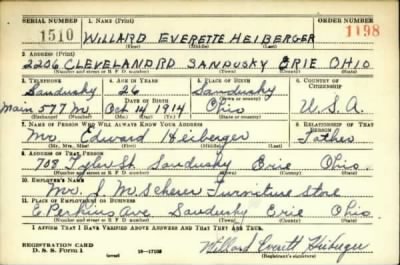 SERIAL NUMBER 1. NAME (Print) ORDER NUMBER
1510 WILLARD EVERETTE HEIBERGER 1198
(First) (Middle) (Last)
2. ADDRESS (Print)
2206 CLEVELAND RD SANDUSKY ERIE OHIO
(Number and street or R. F. D. number) (Town) (County) (State)
3. TELEPHONE 4. AGE IN YEARS 5. PLACE OF BIRTH 6. COUNTRY OF CITIZENSHIP
Sandusky 26 Sandusky
DATE OF BIRTH
Main 577 M Oct 14 1914 Ohio U.S.A.
(Exchange) (Number) (Mo.) (Day) (Yr.) (State or country)
7. NAME OF PERSON WHO WILL ALWAYS KNOW YOUR ADDRESS 8. RELATIONSHIP OF THAT PERSON
Mr. Edward Heiberger Father
(Mr., Mrs., Miss) (First) (Middle) (Last)
9. ADDRESS OF THAT PERSON
709 Tyler St. Sandusky Erie Ohio.
(Number and street or R. F. D. number) (Town) (County) (State)
10. EMPLOYER'S NAME
Mr. J. M. Furniture Store
11. PLACE OF EMPLOYMENT OR BUSINESS
E Perkins Ave Sandusky Erie Ohio.
(Number and street or R. F. D. number) (Town) (County) (State)
I AFFIRM THAT I HAVE VERIFIED ABOVE ANSWERS AND THAT THEY ARE TRUE.
REGISTRATION CARD
D. S. S. Form 1 (over) Willard Everett Heiberger
(Registrant's signature)